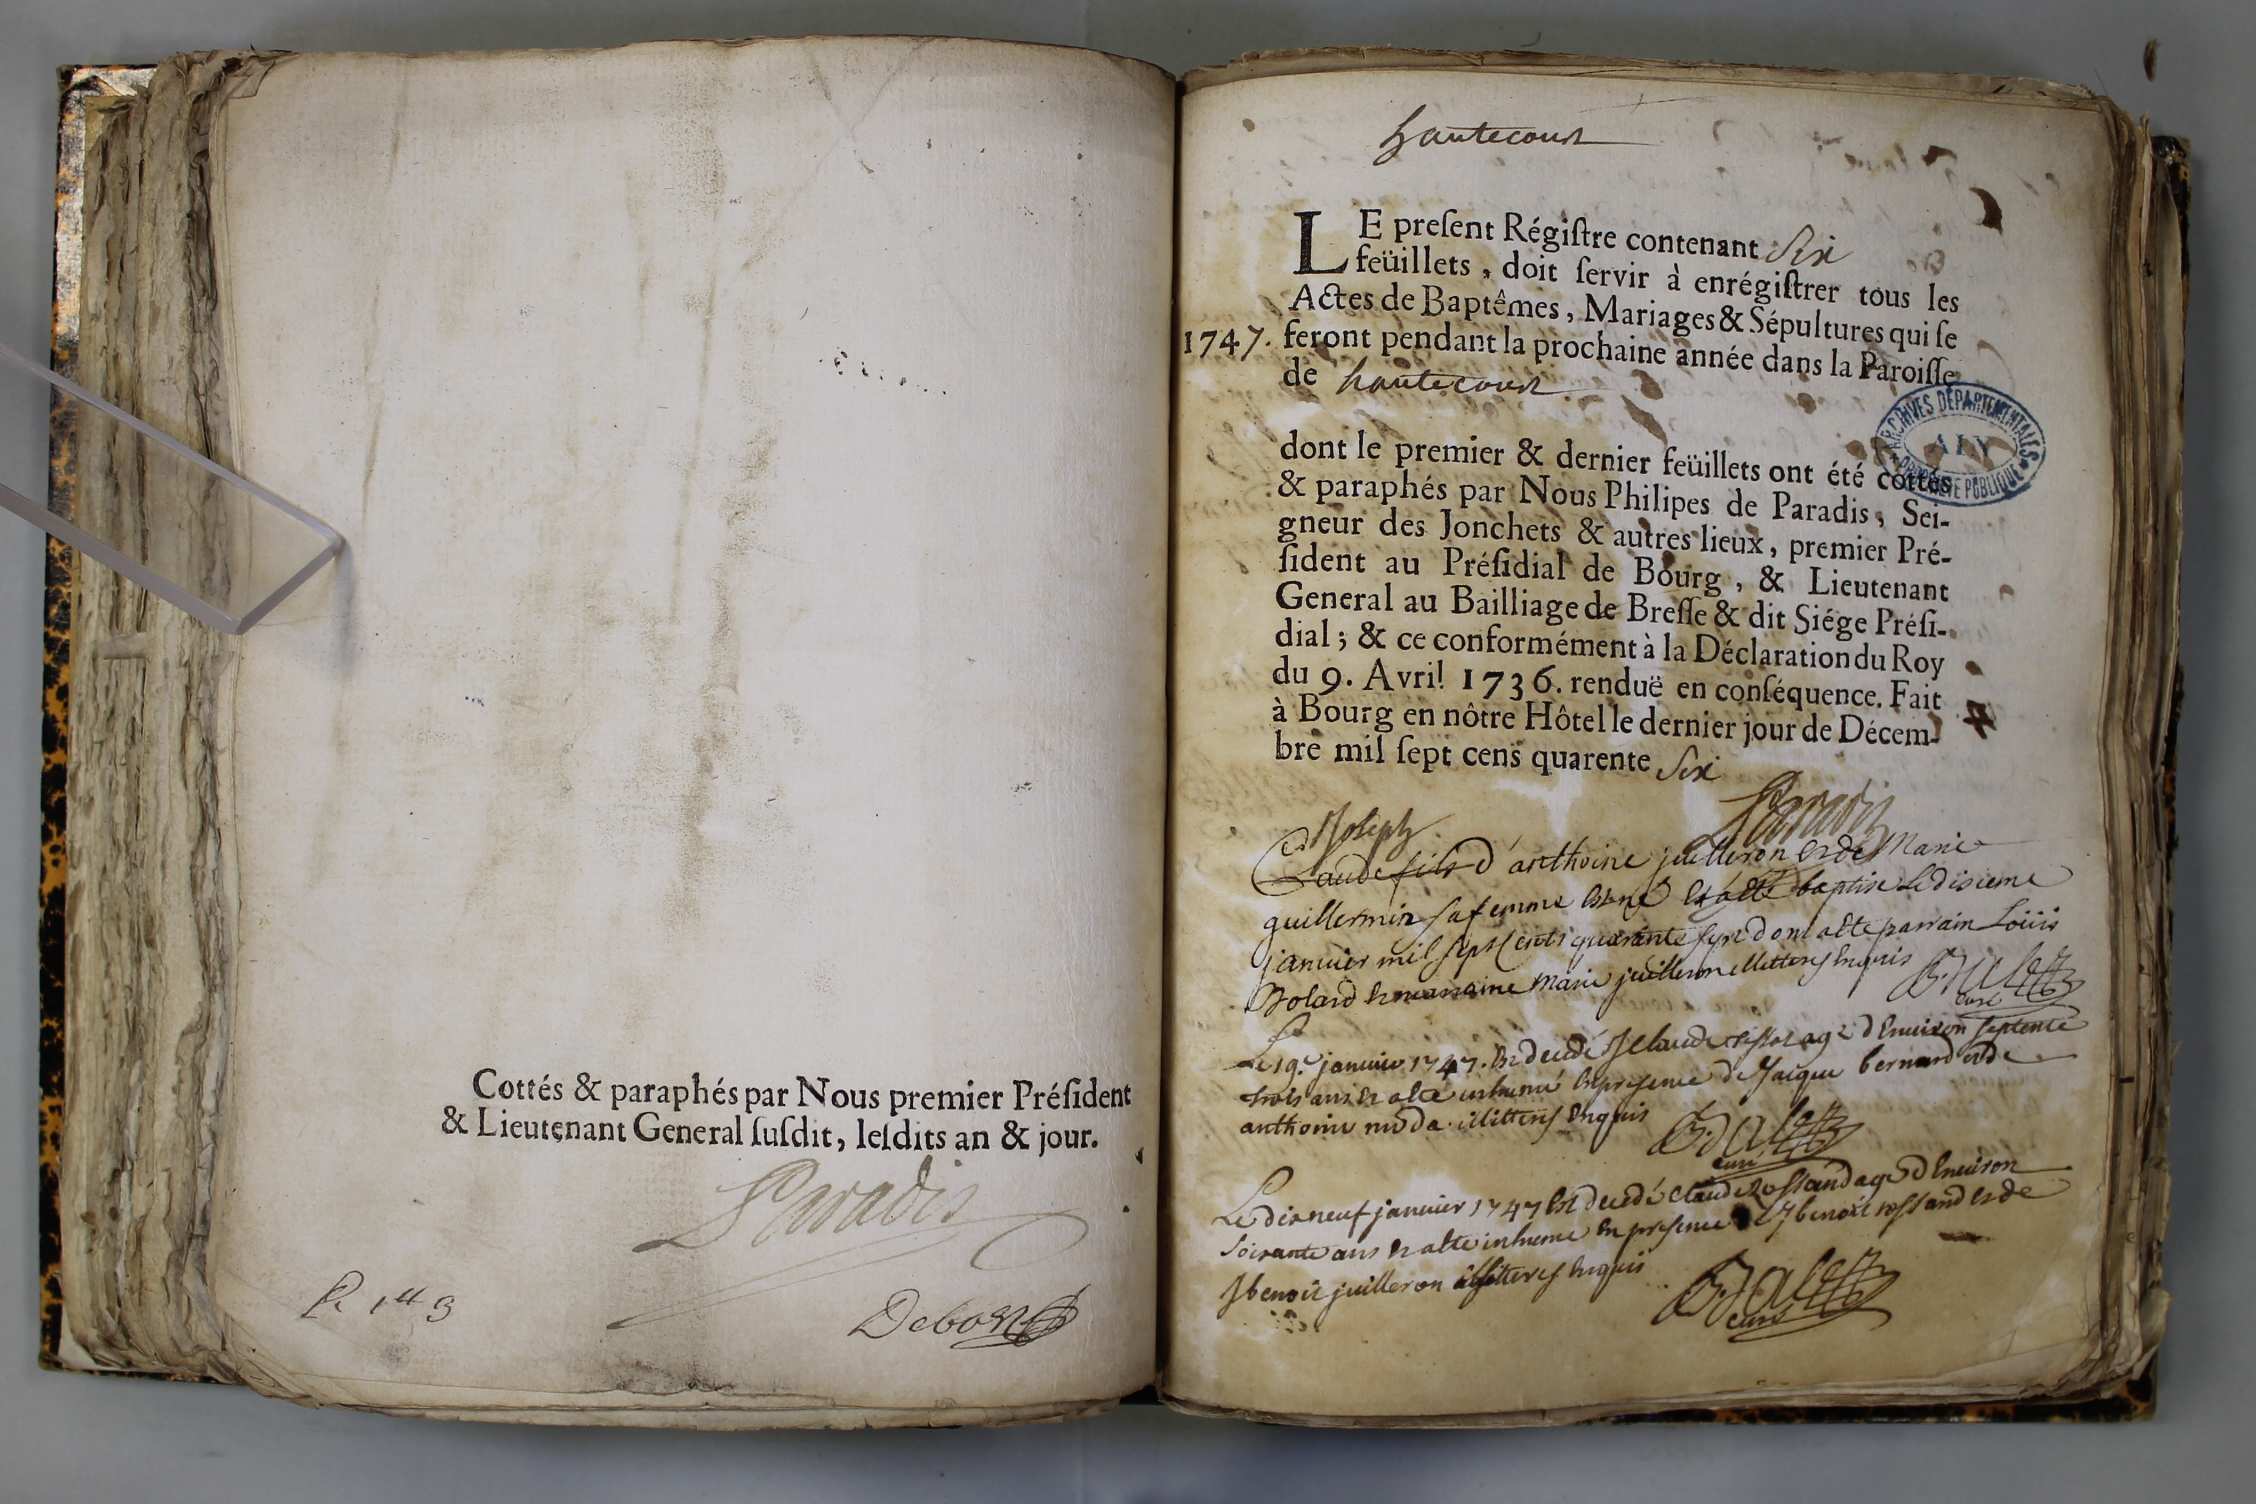 Cottés & paraphés par Nous premier Préſident
& Lieutenant General ſuſdit, leſdits an & jour.
Paradis
Debost
hautecourt
LE preſent Régiſtre contenant Six
feüillets, doit ſervir à enrégiſtrer tous les
Actes de Baptêmes, Mariages & Sépultures qui ſe
1747. feront pendant la prochaine année dans la Paroiſſe
de hautecourt
ARCHIVES DÉPARTEMENTALES
AIN
PROPRIÉTÉ PUBLIQUE
dont le premier & dernier feüillets ont été cottés
& paraphés par Nous Philipes de Paradis, Sei-
gneur des Jonchets & autres lieux, premier Pré-
ſident au Préſidial de Bourg, & Lieutenant
General au Bailliage de Breſſe & dit Siége Préſi-
dial; & ce conformément à la Déclaration du Roy
du 9. Avril 1736. renduë en conſéquence. Fait
à Bourg en nôtre Hôtel le dernier jour de Décem-
bre mil ſept cens quarente Six
Paradis
Joseph
Claude fils d'anthoine juilleron et de Marie
guillermin sa femme est né et a été baptise le disieme
janvier mil sept cents quarante sept dont a été parrain Louis
et marraine Marie juilleron illetterés enquis
curé
Le 19e janvier 1747. est decedé Claude agé d'environ septente
trois ans et a été inhumé en presence de Jacque bernard et de
anthoine illitterés enquis
curé
Le dix neuf janvier 1747 est decedé Claude rossand agé d'environ
soixante ans et a été inhumé en presence de benoit rossand et de
benoit juilleron illitterés enquis
curé